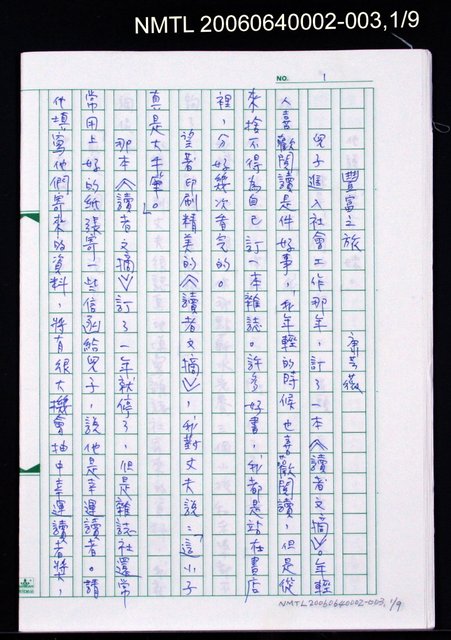 NMTL 20060640002-003,1/9
NO. 1
豐富之旅。 康芸薇
兒子進入社會工作那年，訂了一本《讀者文摘》。年輕
人喜歡閱讀是件好事，我年輕的時候也喜歡閱讀，但是從
來捨不得為自己訂一本雜誌。許多好書，我都是站在書店
裡，分好幾次看完的。
望著印刷精美的《讀者文摘》，我對丈夫說：「這小子
真是大手筆。」
那本《讀者文摘》訂了一年就停了，但是雜誌社還常
常用上好的紙張寄一些信函給兒子，說他是幸運讀者。請
他填寫他們寄來的資料，將有很大機會抽中幸運讀者獎，
NMTL20060640002-003, 1/9